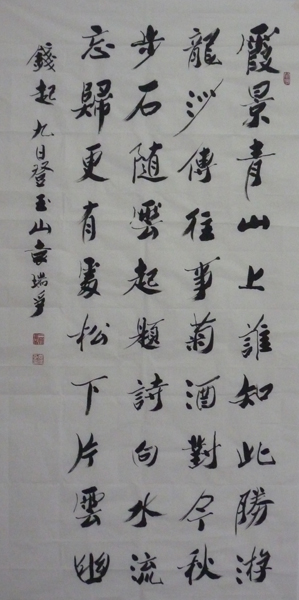 霞景青山上誰知此勝游
龍沙傳往事菊酒對今秋
步石隨雲起題詩向水流
忘歸更有處松下片雲幽
錢起九日登玉山